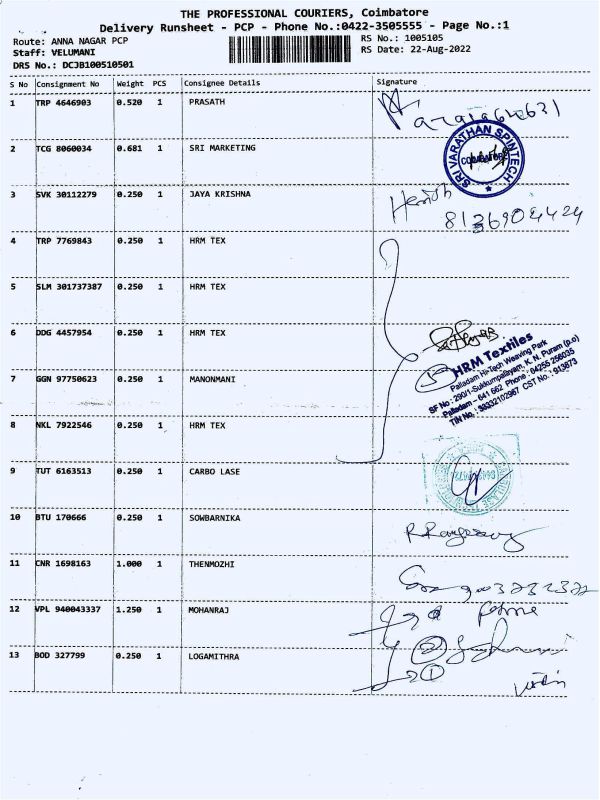 THE PROFESSIONAL COURIERS, Coimbatore
Delivery Runsheet - PCP - Phone No.:0422-3505555 - Page No.:1
Route: ANNA NAGAR PCP
Staff: VELUMANI
DRS No.: DCJB100510501
RS No.: 1005105
RS Date: 22-Aug-2022
S No Consignment No Weight PCS Consignee Details Signature
1 TRP 4646903 0.520 1 PRASATH
2 TCG 8060034 0.681 1 SRI MARKETING
SRI VARATHAN SPINTECH
COIMBATORE
3 SVK 30112279 0.250 1 JAYA KRISHNA
8136904424
4 TRP 7769843 0.250 1 HRM TEX
5 SLM 301737387 0.250 1 HRM TEX
6 DDG 4457954 0.250 1 HRM TEX
HRM Textiles
Palladam Hi-Tech Weaving Park
SF No : 290/1-Sukkumpalayam, K. N. Puram (p.o)
Palladam - 641 662 Phone : 04255 256035
TIN No. : 33332102967 CST No. : 913873
7 GGN 97750623 0.250 1 MANONMANI
8 NKL 7922546 0.250 1 HRM TEX
9 TUT 6163513 0.250 1 CARBO LASE
10 BTU 170666 0.250 1 SOWBARNIKA
11 CNR 1698163 1.000 1 THENMOZHI
12 VPL 940043337 1.250 1 MOHANRAJ
13 BOD 327799 0.250 1 LOGAMITHRA